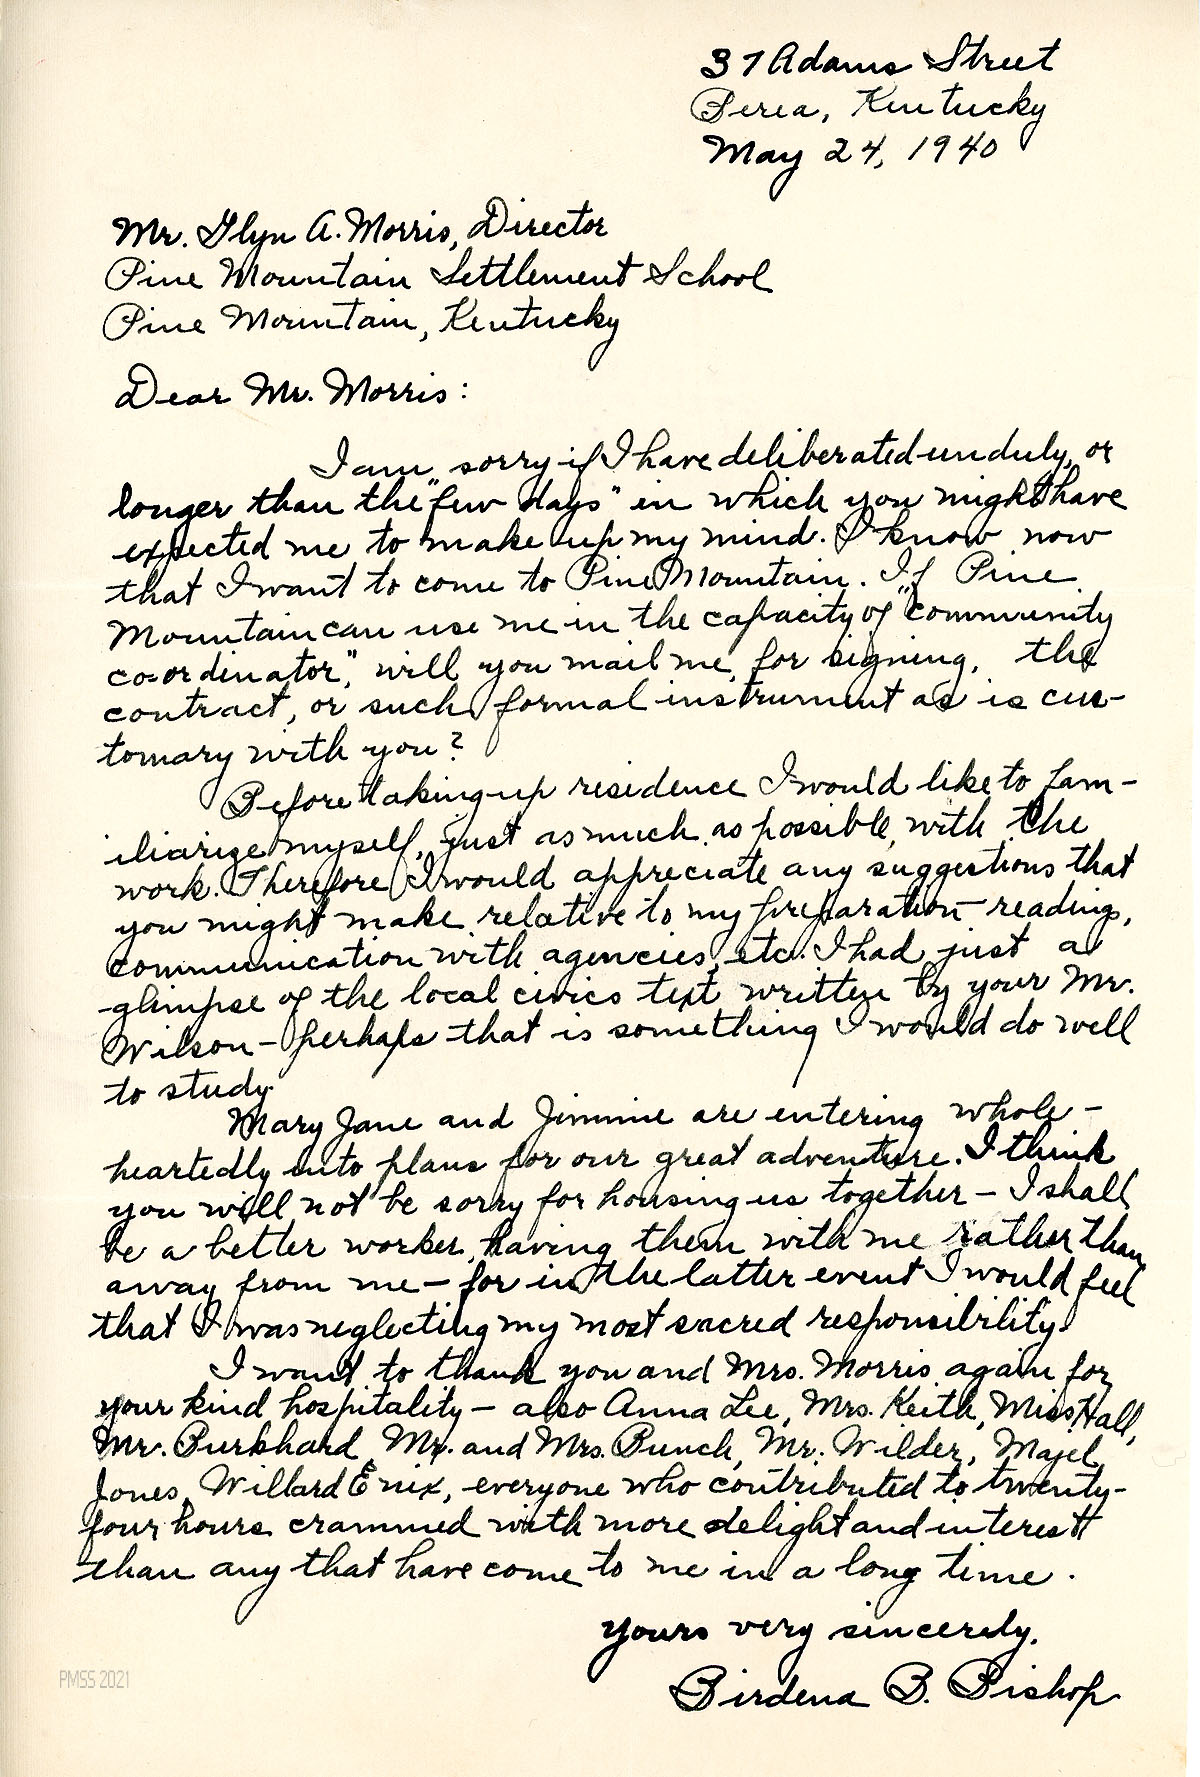 37 Adams Street
Berea, Kentucky
May 24, 1940
Mr. Glyn A. Morris, Director
Pine Mountain Settlement School
Pine Mountain, Kentucky
Dear Mr. Morris:
I am sorry if I have deliberated unduly, or
longer than the "few days" in which you might have
expected me to make up my mind. I know now
that I want to come to Pine Mountain. If Pine
Mountain can use me in the capacity of "community
co-ordinator", will you mail me, for signing, the
contract, or such formal instrument as is cus-
tomary with you?
Before taking up residence I would like to fam-
iliarize myself, just as much as possible, with the
work. Therefore I would appreciate any suggestions that
you might make relative to my preparation - readings,
communication with agencies, etc. I had just a
glimpse of the local civics text written by your Mr.
Wilson - perhaps that is something I would do well
to study.
Mary Jane and Jimmie are entering whole-
heartedly into plans for our great adventure. I think
you will not be sorry for housing us together - I shall
be a better worker, having them with me rather than
away from me - for in the latter event I would feel
that I was neglecting my most sacred responsibility.
I want to thank you and Mrs. Morris again for
your kind hospitality - also Anna Lee, Mrs. Keith, Miss Hall,
Mr. Burkhard, Mr. and Mrs. Bunch, Mr. Wilder, Majel
Jones, Willard Enix, everyone who contributed to twenty-
four hours crammed with more delight and interest
than any that have come to me in a long time.
Yours very sincerely,
Birdena B. Bishop
PMSS 2021